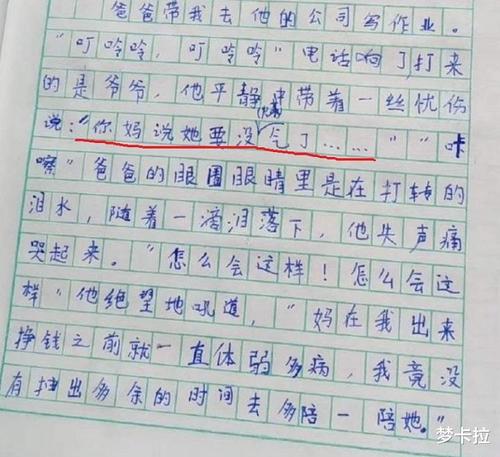 爸爸带我去他的公司写作业。
“叮呤呤，叮呤呤”电话响了打来
的是爷爷，他平静中带着一丝忧伤
说：“你妈说她要没气了……””咔
嚓”爸爸的眼圈眼睛里是在打转的
泪水，随着一滴泪落下，他失声痛
哭起来。“怎么会这样！怎么会这
样”他绝望地吼道，“妈在我出来
挣钱之前就一直体弱多病，我竟没
有抽出多余的时间去多陪一陪她。”
梦卡拉